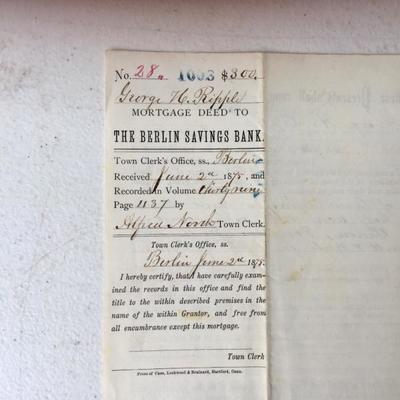 No. 28. 1093 $300.
George H. Ripple
MORTGAGE DEED TO
THE BERLIN SAVINGS BANK.
Town Clerk's Office, ss., Berlin
Received June 2nd 1875, and
Recorded in Volume
Page 1137 by
Alfred North Town Clerk.
Town Clerk's Office, ss.
Berlin June 2nd 1875.
I hereby certify, that I have carefully exam-
ined the records in this office and find the
title to the within described premises in the
name of the within Grantor, and free from
all encumbrance except this mortgage.
Town Clerk
Press of Case, Lockwood & Brainard, Hartford, Conn.